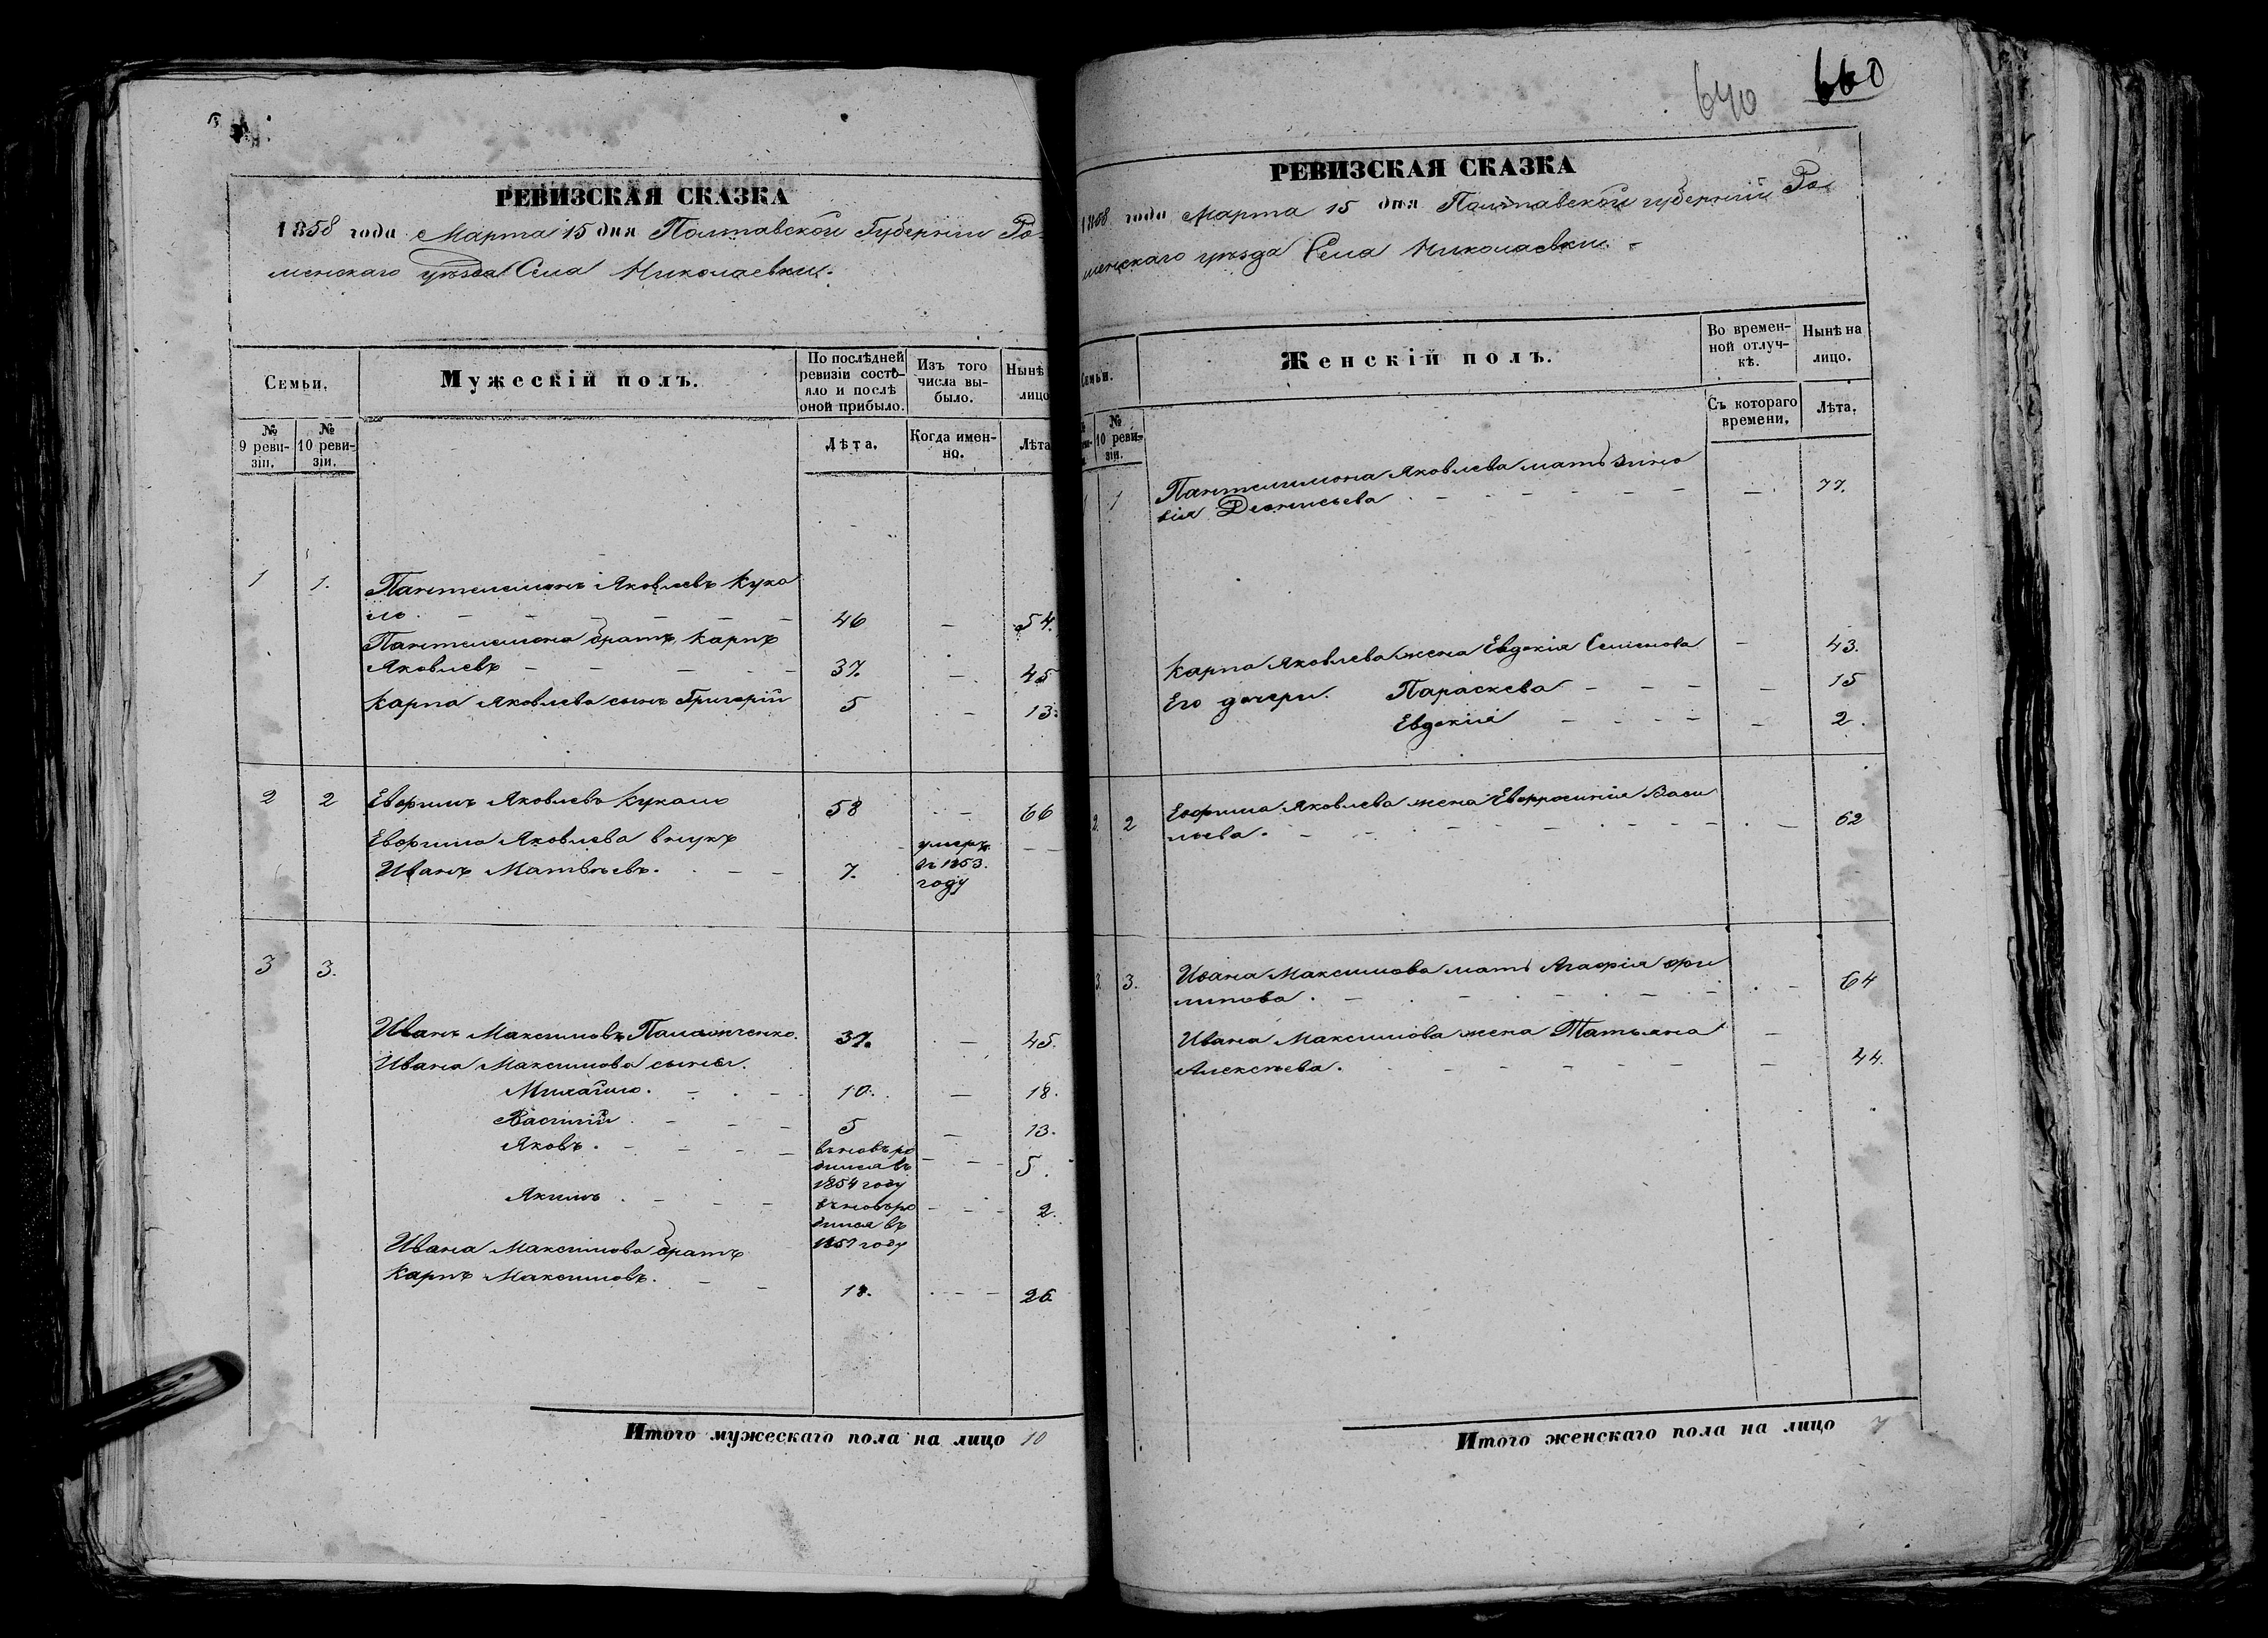 РЕВИЗСКАЯ СКАЗКА
1858 года Марта 15 дня Полтавской Губерніи Ро-
менскаго уѣзда Села Николаевки.
Семьи.
Мужескій полъ.
По послѣдней ревизіи состояло и послѣ оной прибыло.
Изъ того числа выбыло.
Нынѣ
лицо
№ 9 ревизіи.
№ 10 ревизіи.
Лѣта.
Когда именно.
Лѣта
1 1. Пантелеимонъ Яковлевъ Кука
ло. 46 — 54.
Пантелеимона братъ Карпъ
Яковлевъ 37. — 45
Карпа Яковлева сынъ Григорій 5 — 13.
2 2 Евфимъ Яковлевъ Кукало 58 — 66
Евфима Яковлева внукъ умеръ
Иванъ Матвѣевъ. 7. въ 1853.
году
3 3.
Иванъ Максимовъ 37. — 45.
Ивана Максимова сыны.
Михайло. 10. — 18.
Василій 5 — 13.
Яковъ. вновь ро
дился въ 5.
1854 году
Акимъ вновь ро
дился въ 2.
1857 году
Ивана Максимова братъ
Карпъ Максимовъ. 18. — 26
Итого мужескаго пола на лицо 10
640 660
РЕВИЗСКАЯ СКАЗКА
1858 года Марта 15 дня Полтавской губерніи Ро-
менскаго уѣзда Села Николаевки.
Семьи.
Женскій полъ.
Во временной отлучкѣ.
Нынѣ на лицо.
№ 10 ревизіи.
Съ котораго времени.
Лѣта.
1 1 Пантелимона Яковлева мать Зино
вія Деонисьева — 77.
Карпа Яковлева жена Евдокія Семенова — 43.
Его дочери. Параскева — 15
Евдокія — 2.
2. 2 Евфима Яковлева жена Евфросинія Васи
льева. — 62
3. 3. Ивана Максимова мать Агафія Фи
липова. — 64
Ивана Максимова жена Татьяна
Алексѣева. — 44.
Итого женскаго пола на лицо 7